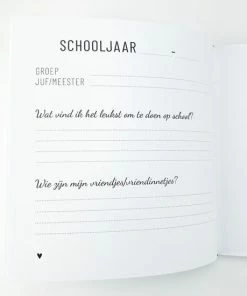 SCHOOLJAAR -
GROEP
JUF/MEESTER
Wat vind ik het leukst om te doen op school?
Wie zijn mijn vriendjes/vriendinnetjes?